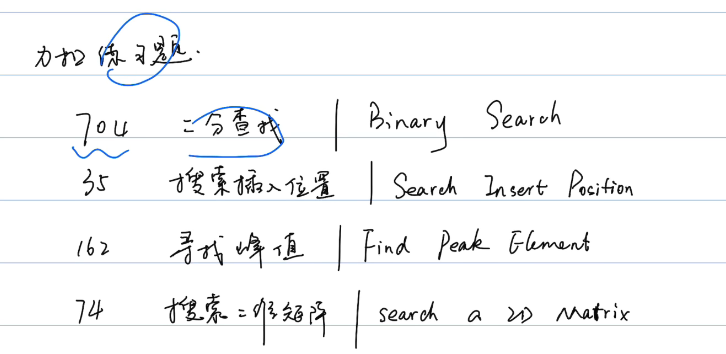 力扣 练习题.
704 二分查找 | Binary Search
35 搜索插入位置 | Search Insert Position
162 寻找峰值 | Find Peak Element
74 搜索二维矩阵 | search a 2D Matrix